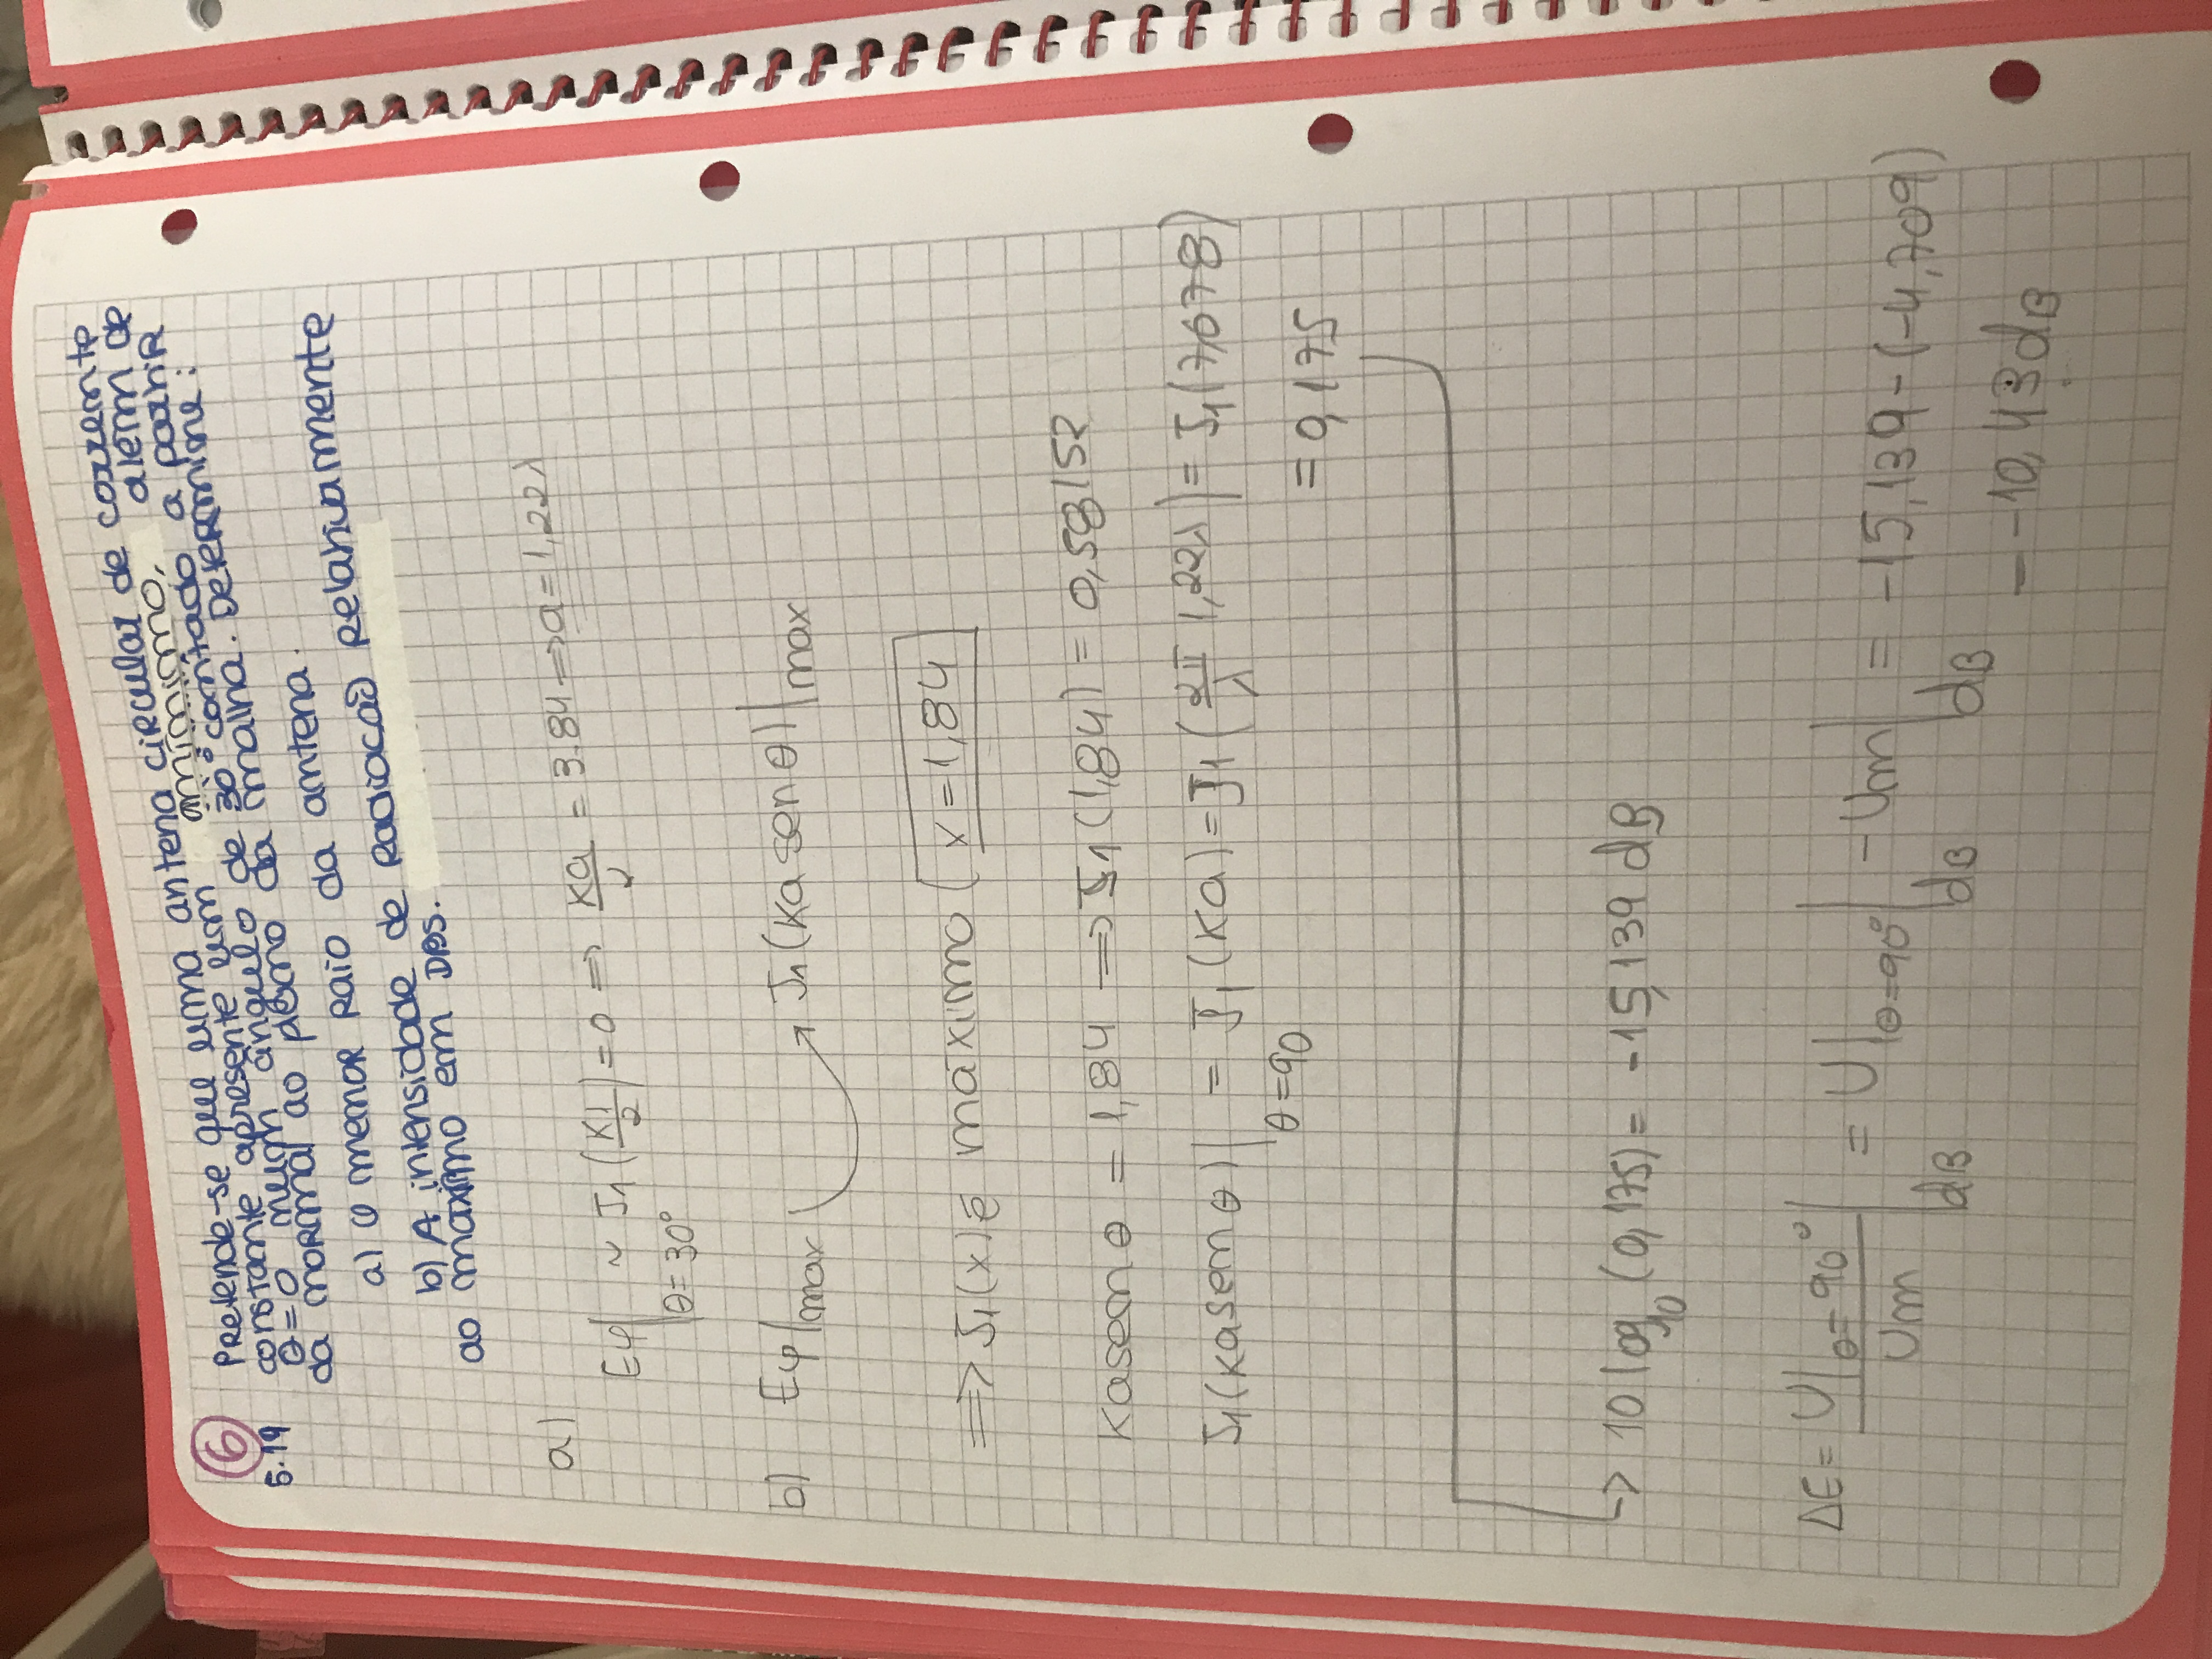 6
5.19
Pretende-se que uma antena circular de corrente
constante apresente um mínimo, além de
θ=0 num ângulo de 30° contado a partir
da normal ao plano da malha. Determine:
a) O menor raio da antena.
b) A intensidade de radiação relativamente
ao máximo em DBs.
a)
Eφ|θ=30° ~ J₁(K1/2) = 0 ⇒ Ka/2 = 3.84 ⇒ a = 1,22λ
b) Eφ|max → J₁(Ka sen θ)|max
⇒ J₁(x) é máximo (x = 1,84
Kasen θ = 1,84 ⇒ J₁(1,84) = 0,58152
J₁(Kasen θ)|θ=90 = J₁(Ka) = J₁(2π/λ 1,22λ) = J₁(7,678)
= 0,175
→ 10 log₁₀ (0,175) = -15,139 dB
ΔE = U|θ=90°/Um|dB = U|θ=90°|dB - Um|dB = -15,139-(-4,709)
= -10,43 dB